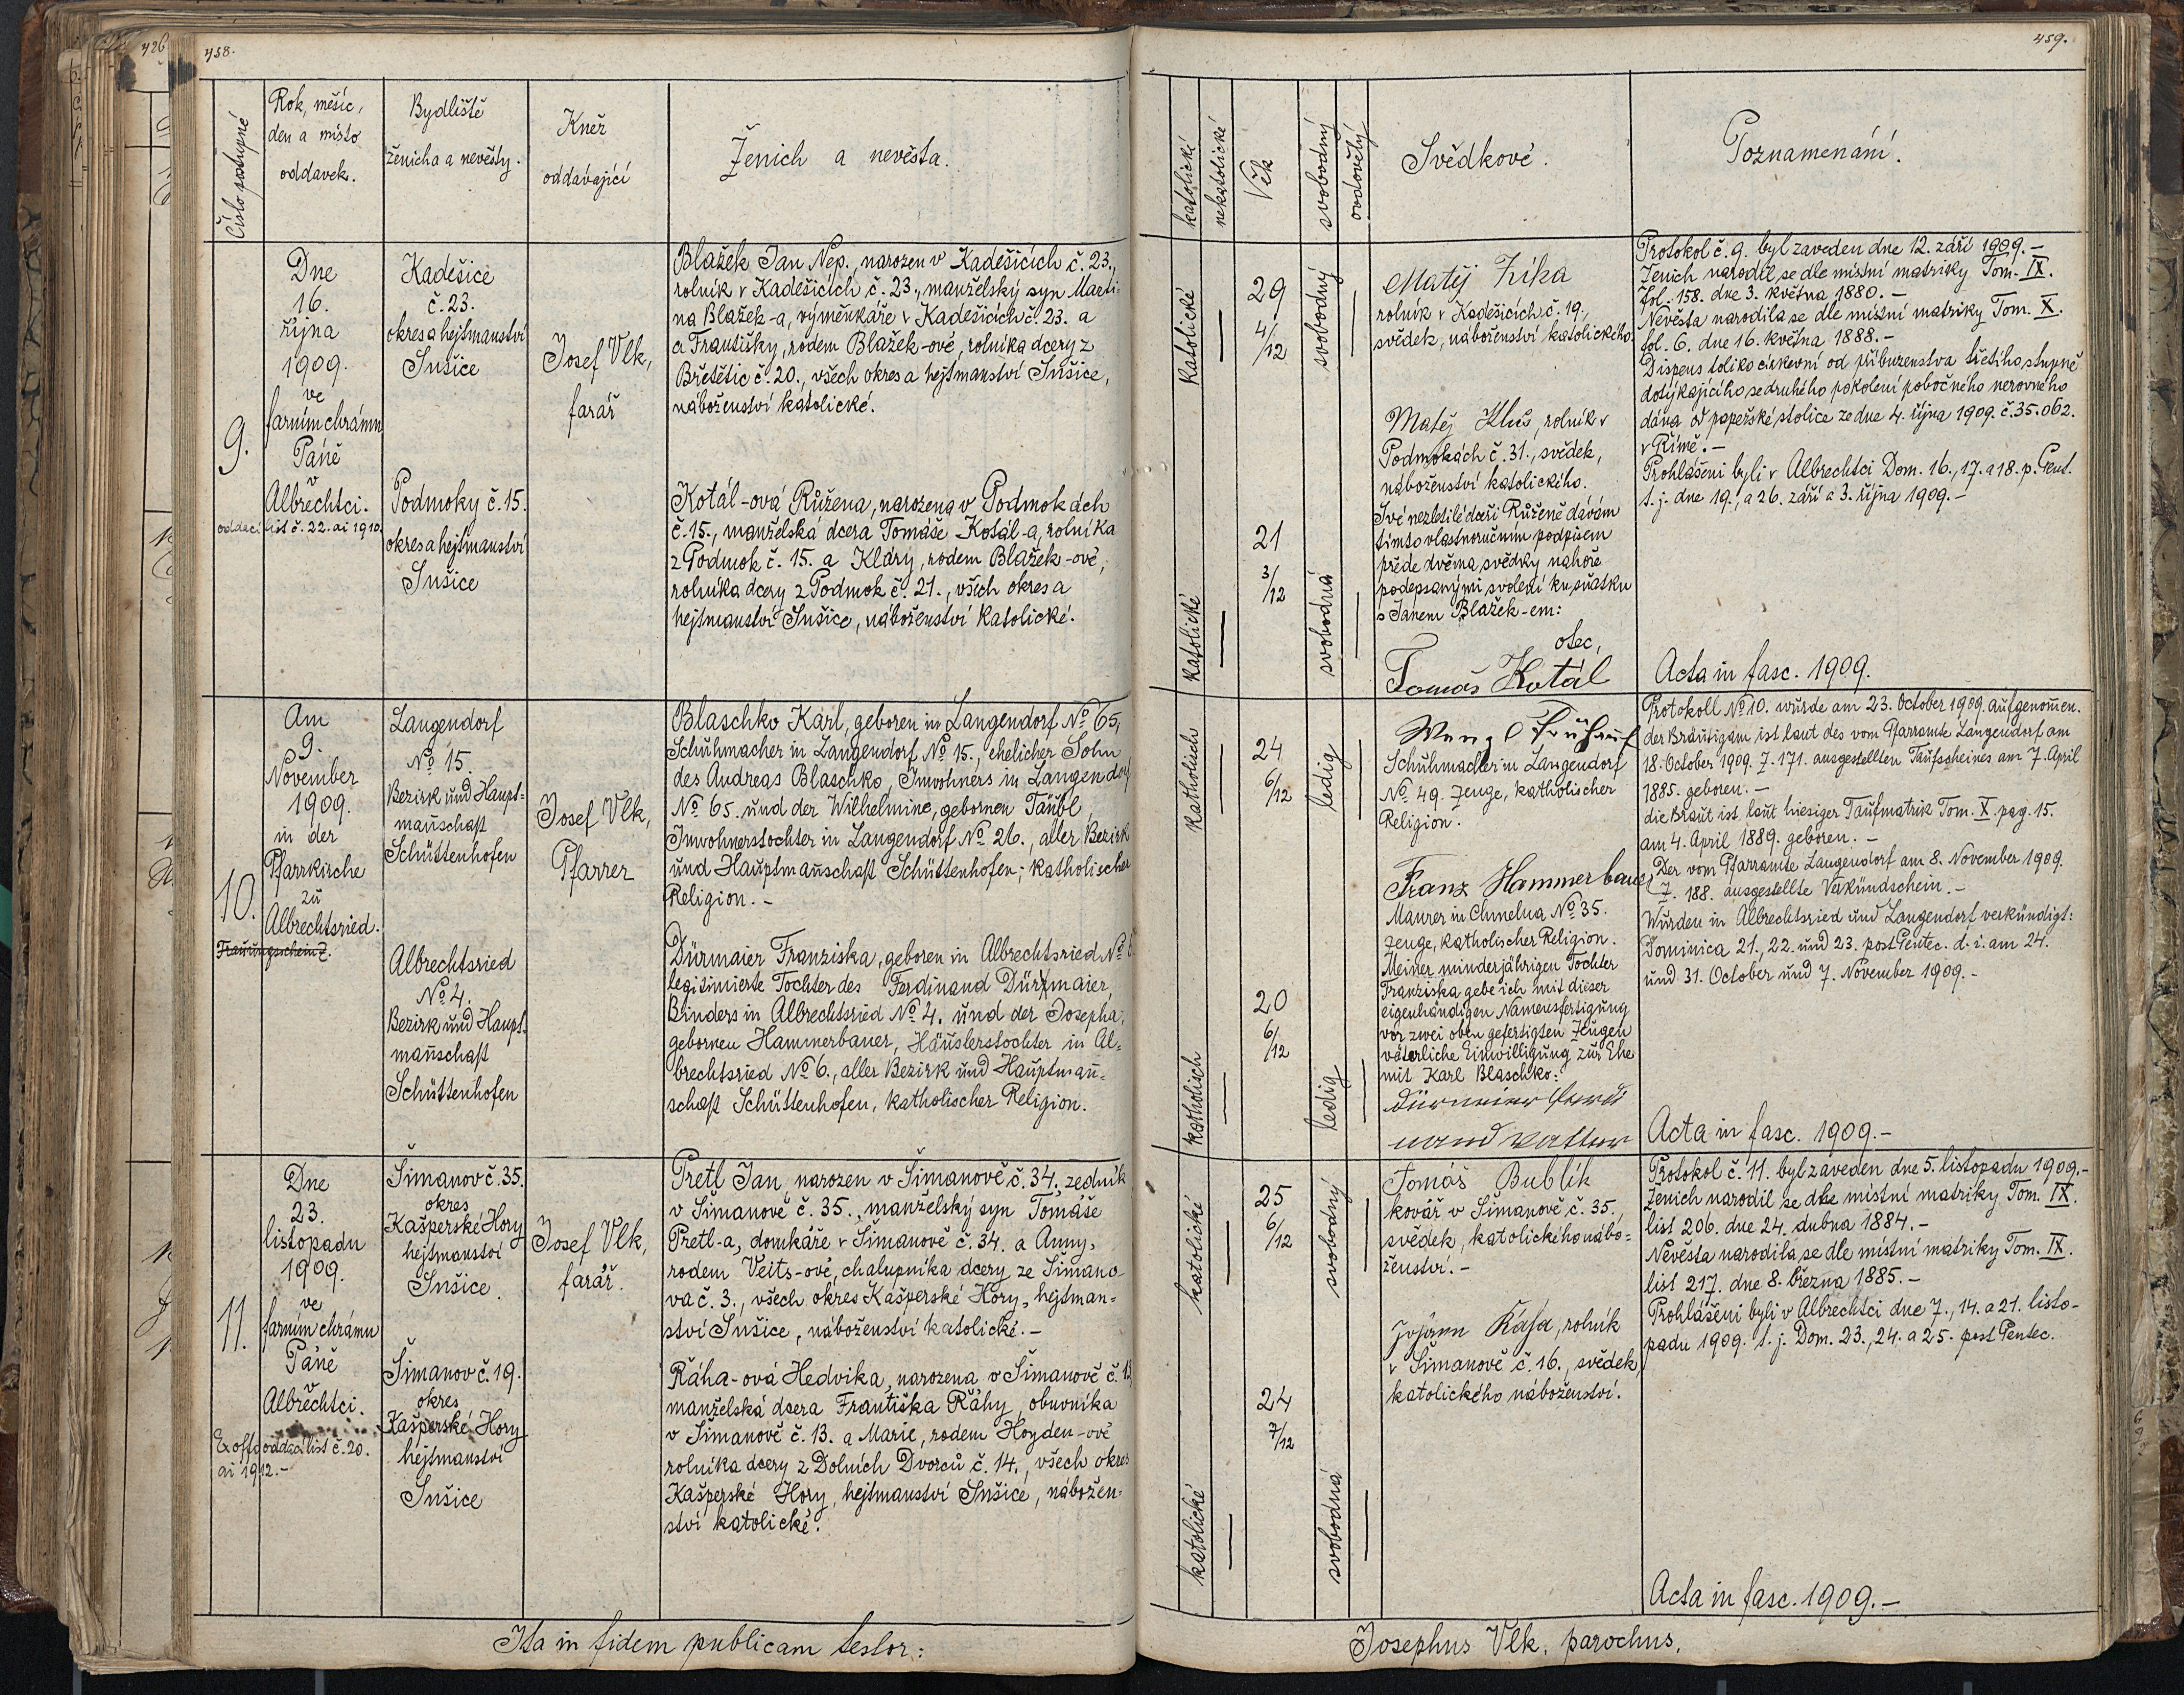 426
458.
Číslo postupné
Rok, měsíc,
den a místo
oddavek.
Bydliště
ženicha a nevěsty.
Kněz
oddávající
Ženich a nevěsta.
9.
Dne
16.
října
1909.
ve
farním chrámu
Páně
v
Albrechtci.
oddací list č. 22. ai 1910.
Kadešice
č. 23.
okres a hejtmanství
Sušice
Podmoky č. 15.
okres a hejtmanství
Sušice
Josef Vlk,
farář
Blažek Jan Nep., narozen v Kadešicích č. 23.,
rolník v Kadešicích č. 23., manželský syn Marti-
na Blažek-a, výměnkáře v Kadešicích č. 23. a
a Františky, rodem Blažek-ové, rolníka dcery z
Břetětic č. 20., všech okres a hejtmanství Sušice,
náboženství katolické.
Kotál-ová Růžena, narozena v Podmokách
č. 15., manželská dcera Tomáše Kotál-a, rolníka
z Podmok č. 15. a Kláry, rodem Blažek-ové,
rolníka dcery z Podmok č. 21., všech okres a
hejtmanství Sušice, náboženství katolické.
10.
Am
9.
November
1909.
in der
Pfarrkirche
zu
Albrechtsried.
Trauungsschein Z.
Langendorf
No 15.
Bezirk und Haupt=
mañschaft
Schüttenhofen
Albrechtsried
No 4.
Bezirk und Haupt=
mañschaft
Schüttenhofen
Josef Vlk,
Pfarrer
Blaschko Karl, geboren in Langendorf No 65,
Schuhmacher in Langendorf No 15., ehelicher Sohn
des Andreas Blaschko, Inwohners in Langendorf
No 65. und der Wilhelmine, gebornen Taubl,
Inwohnerstochter in Langendorf No 26., aller Bezirk
und Hauptmañschaft Schüttenhofen; katholischer
Religion. -
Dürmaier Franziska, geboren in Albrechtsried No 6
legitimierte Tochter des Ferdinand Dürmaier,
Binders in Albrechtsried No 4. und der Josepha,
gebornen Hammerbauer, Häuslerstochter in Al=
brechtsried No 6., aller Bezirk und Hauptmañ=
schaft Schüttenhofen, katholischer Religion.
11.
Dne
23.
listopadu
1909.
ve
farním chrámu
Páně
v
Albrechtci.
Ex offo oddací list č. 20.
ai 1912.-
Šimanov č. 35.
okres
Kašperské Hory
hejtmanství
Sušice.
Šimanov č. 19.
okres
Kašperské Hory
hejtmanství
Sušice
Josef Vlk,
farář.
Pretl Jan, narozen v Šimanově č. 34., zedník
v Šimanově č. 35., manželský syn Tomáše
Pretl-a, domkáře v Šimanově č. 34. a Anny,
rodem Veits-ové, chalupníka dcery ze Šimano-
va č. 3., všech okres Kašperské Hory, hejtman=
ství Sušice, náboženství katolické. -
Řáha-ová Hedvika, narozena v Šimanově č. 13,
manželská dcera Františka Řáhy, obuvníka
v Šimanově č. 13. a Marie, rodem Hoyden-ové
rolníka dcery z Dolních Dvorců č. 14., všech okres
Kašperské Hory, hejtmanství Sušice, nábožen=
ství katolické.
Ita in fidem publicam testor:
459.
katolické
nekatolické
Věk
svobodný
ovdovělý
Svědkové.
Poznamenání.
katolické
29
4/12
svobodný
katolické
21
3/12
svobodná
Matěj Zíka
rolník v Kadešicích č. 19.,
svědek, náboženství katolického.
Matěj Kluš, rolník v
Podmokách č. 31., svědek,
náboženství katolického.
Své nezletilé dceři Růženě dávám
tímto vlastnoručním podpisem
přede dvěma svědky nahoře
podepsanými svolení ku sňatku
s Janem Blažek-em:
otec,
Tomáš Kotál
Protokol č. 9. byl zaveden dne 12. září 1909. -
Ženich narodil se dle místní matriky Tom. IX.
fol. 158. dne 3. května 1880. -
Nevěsta narodila se dle místní matriky Tom. X.
fol. 6. dne 16. května 1888. -
Dispens toliko církevní od příbuzenstva třetího stupně
dotýkajícího se druhého pokolení pobočného nerovného
dána od papežské stolice ze dne 4. října 1909. č. 35.062.
v Římě. -
Prohlášeni byli v Albrechtci Dom. 16., 17. a 18. p. Pent.
t. j. dne 19., a 26. září a 3. října 1909. -
Acta in fasc. 1909.
katholisch
24
6/12
ledig
katholisch
20
6/12
ledig
Wenzl Fruhauf
Schuhmacher in Langendorf
No 49. Zeuge, katholischer
Religion.
Franz Hammerbauer
Maurer in Chmelna No 35.
Zeuge, katholischer Religion.
Meiner minderjährigen Tochter
Franziska gebe ich mit dieser
eigenhändigen Namensfertigung
vor zwei oben gefertigten Zeugen
väterliche Einwilligung zur Ehe
mit Karl Blaschko:
Dürmeier Ferdi
nand Vatter
Protokoll No 10. wurde am 23. October 1909. aufgenom̃en.
der Bräutigam ist laut des vom Pfarramte Langendorf am
18. October 1909. Z. 171. ausgestellten Taufscheines am 7. April
1885. geboren. -
die Braut ist laut hiesiger Taufmatrik Tom. X. pag. 15.
am 4. April 1889. geboren. -
Der vom Pfarramte Langendorf am 8. November 1909.
Z. 188. ausgestellte Verkündschein. -
Wurden in Albrechtsried und Langendorf verkündigt:
Dominica 21., 22. und 23. post Pentec. d. i. am 24.
und 31. October und 7. November 1909. -
Acta in fasc. 1909.-
katolické
25
6/12
svobodný
katolické
24
7/12
svobodná
Tomáš Bublík
kovář v Šimanově č. 35.,
svědek, katolického nábo=
ženství. -
Johann Kása, rolník
v Šimanově č. 16., svědek,
katolického náboženství.
Protokol č. 11. byl zaveden dne 5. listopadu 1909.-
Ženich narodil se dle místní matriky Tom. IX.
list 206. dne 24. dubna 1884. -
Nevěsta narodila se dle místní matriky Tom. IX.
list 217. dne 8. března 1885. -
Prohlášeni byli v Albrechtci dne 7., 14. a 21. listo-
padu 1909. t. j. Dom. 23., 24. a 25. post Pentec.
Acta in fasc. 1909.-
Josephus Vlk, parochus.